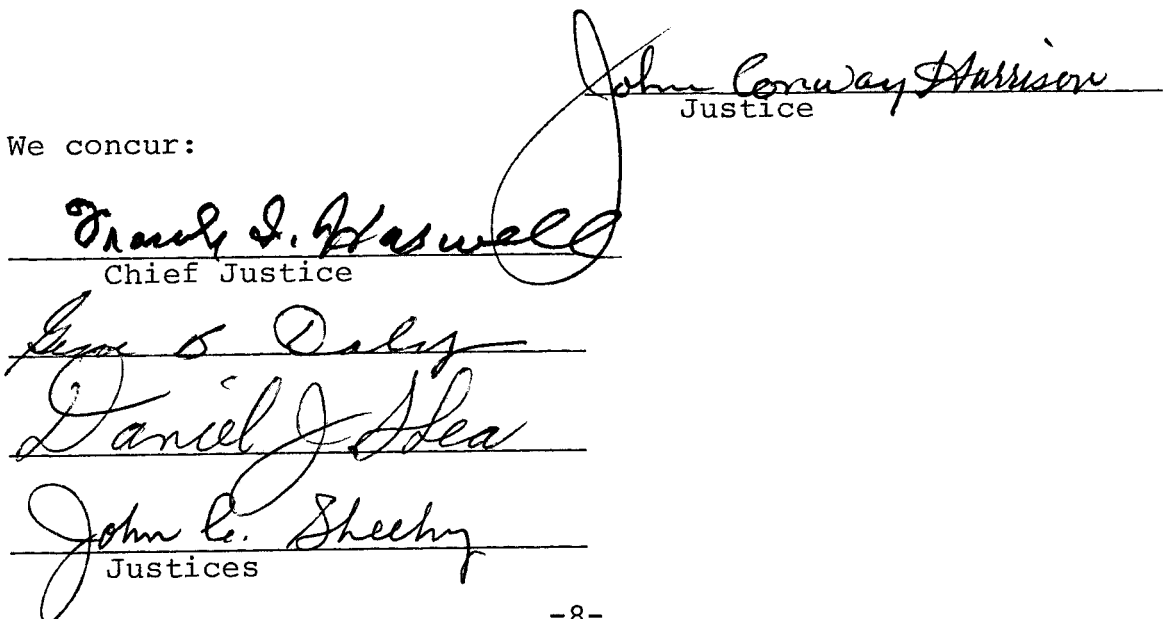 John Conway Harrison
Justice
We concur:
Frank I. Haswell
Chief Justice
Gene B Daly
Daniel J Shea
John C. Sheehy
Justices
-8-